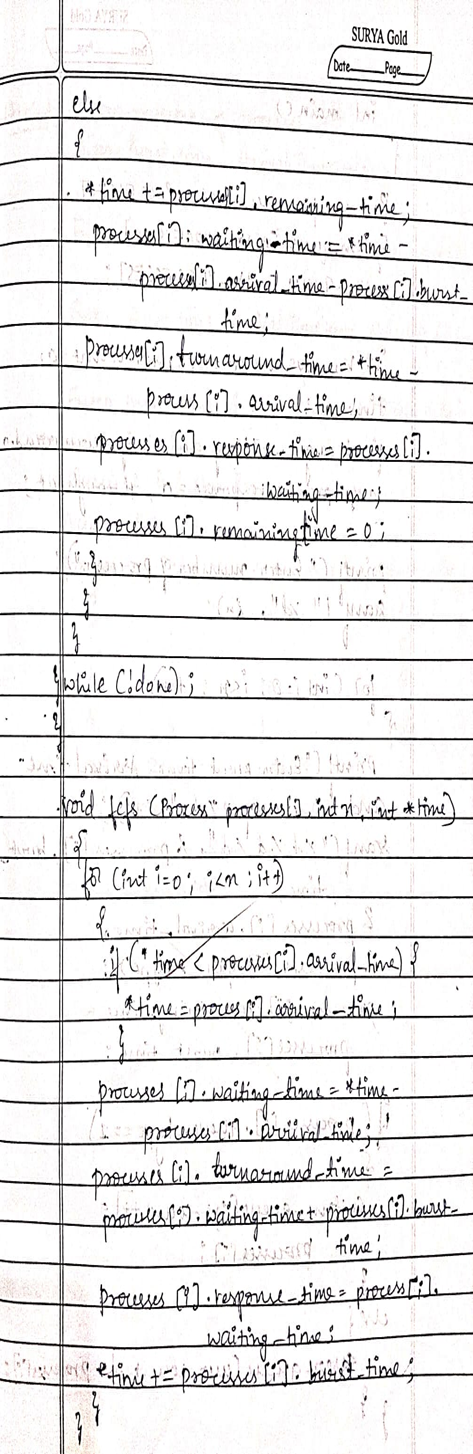 SURYA Gold
Date____Page____
else
{
*time += processes[i].remaining-time;
processes[i].waiting-time = *time -
process[i].arrival-time - process[i].burst-
time;
processes[i].turnaround-time = *time -
process[i].arrival-time;
processes[i].response-time = processes[i].
waiting-time;
processes[i].remainingtime = 0;
}
}
}
} while (!done);
}
void fcfs (Process processes[], int n, int *time)
{
for (int i=0; i<n; i++)
{
if (*time < processes[i].arrival-time) {
*time = proces[i].arrival-time;
}
processes[i].waiting-time = *time -
processes[i].arrival-time;
processes[i].turnaround-time =
processes[i].waiting-time + processes[i].burst-
time;
processes[i].response-time = process[i].
waiting-time;
*time += processes[i].burst-time;
}
}